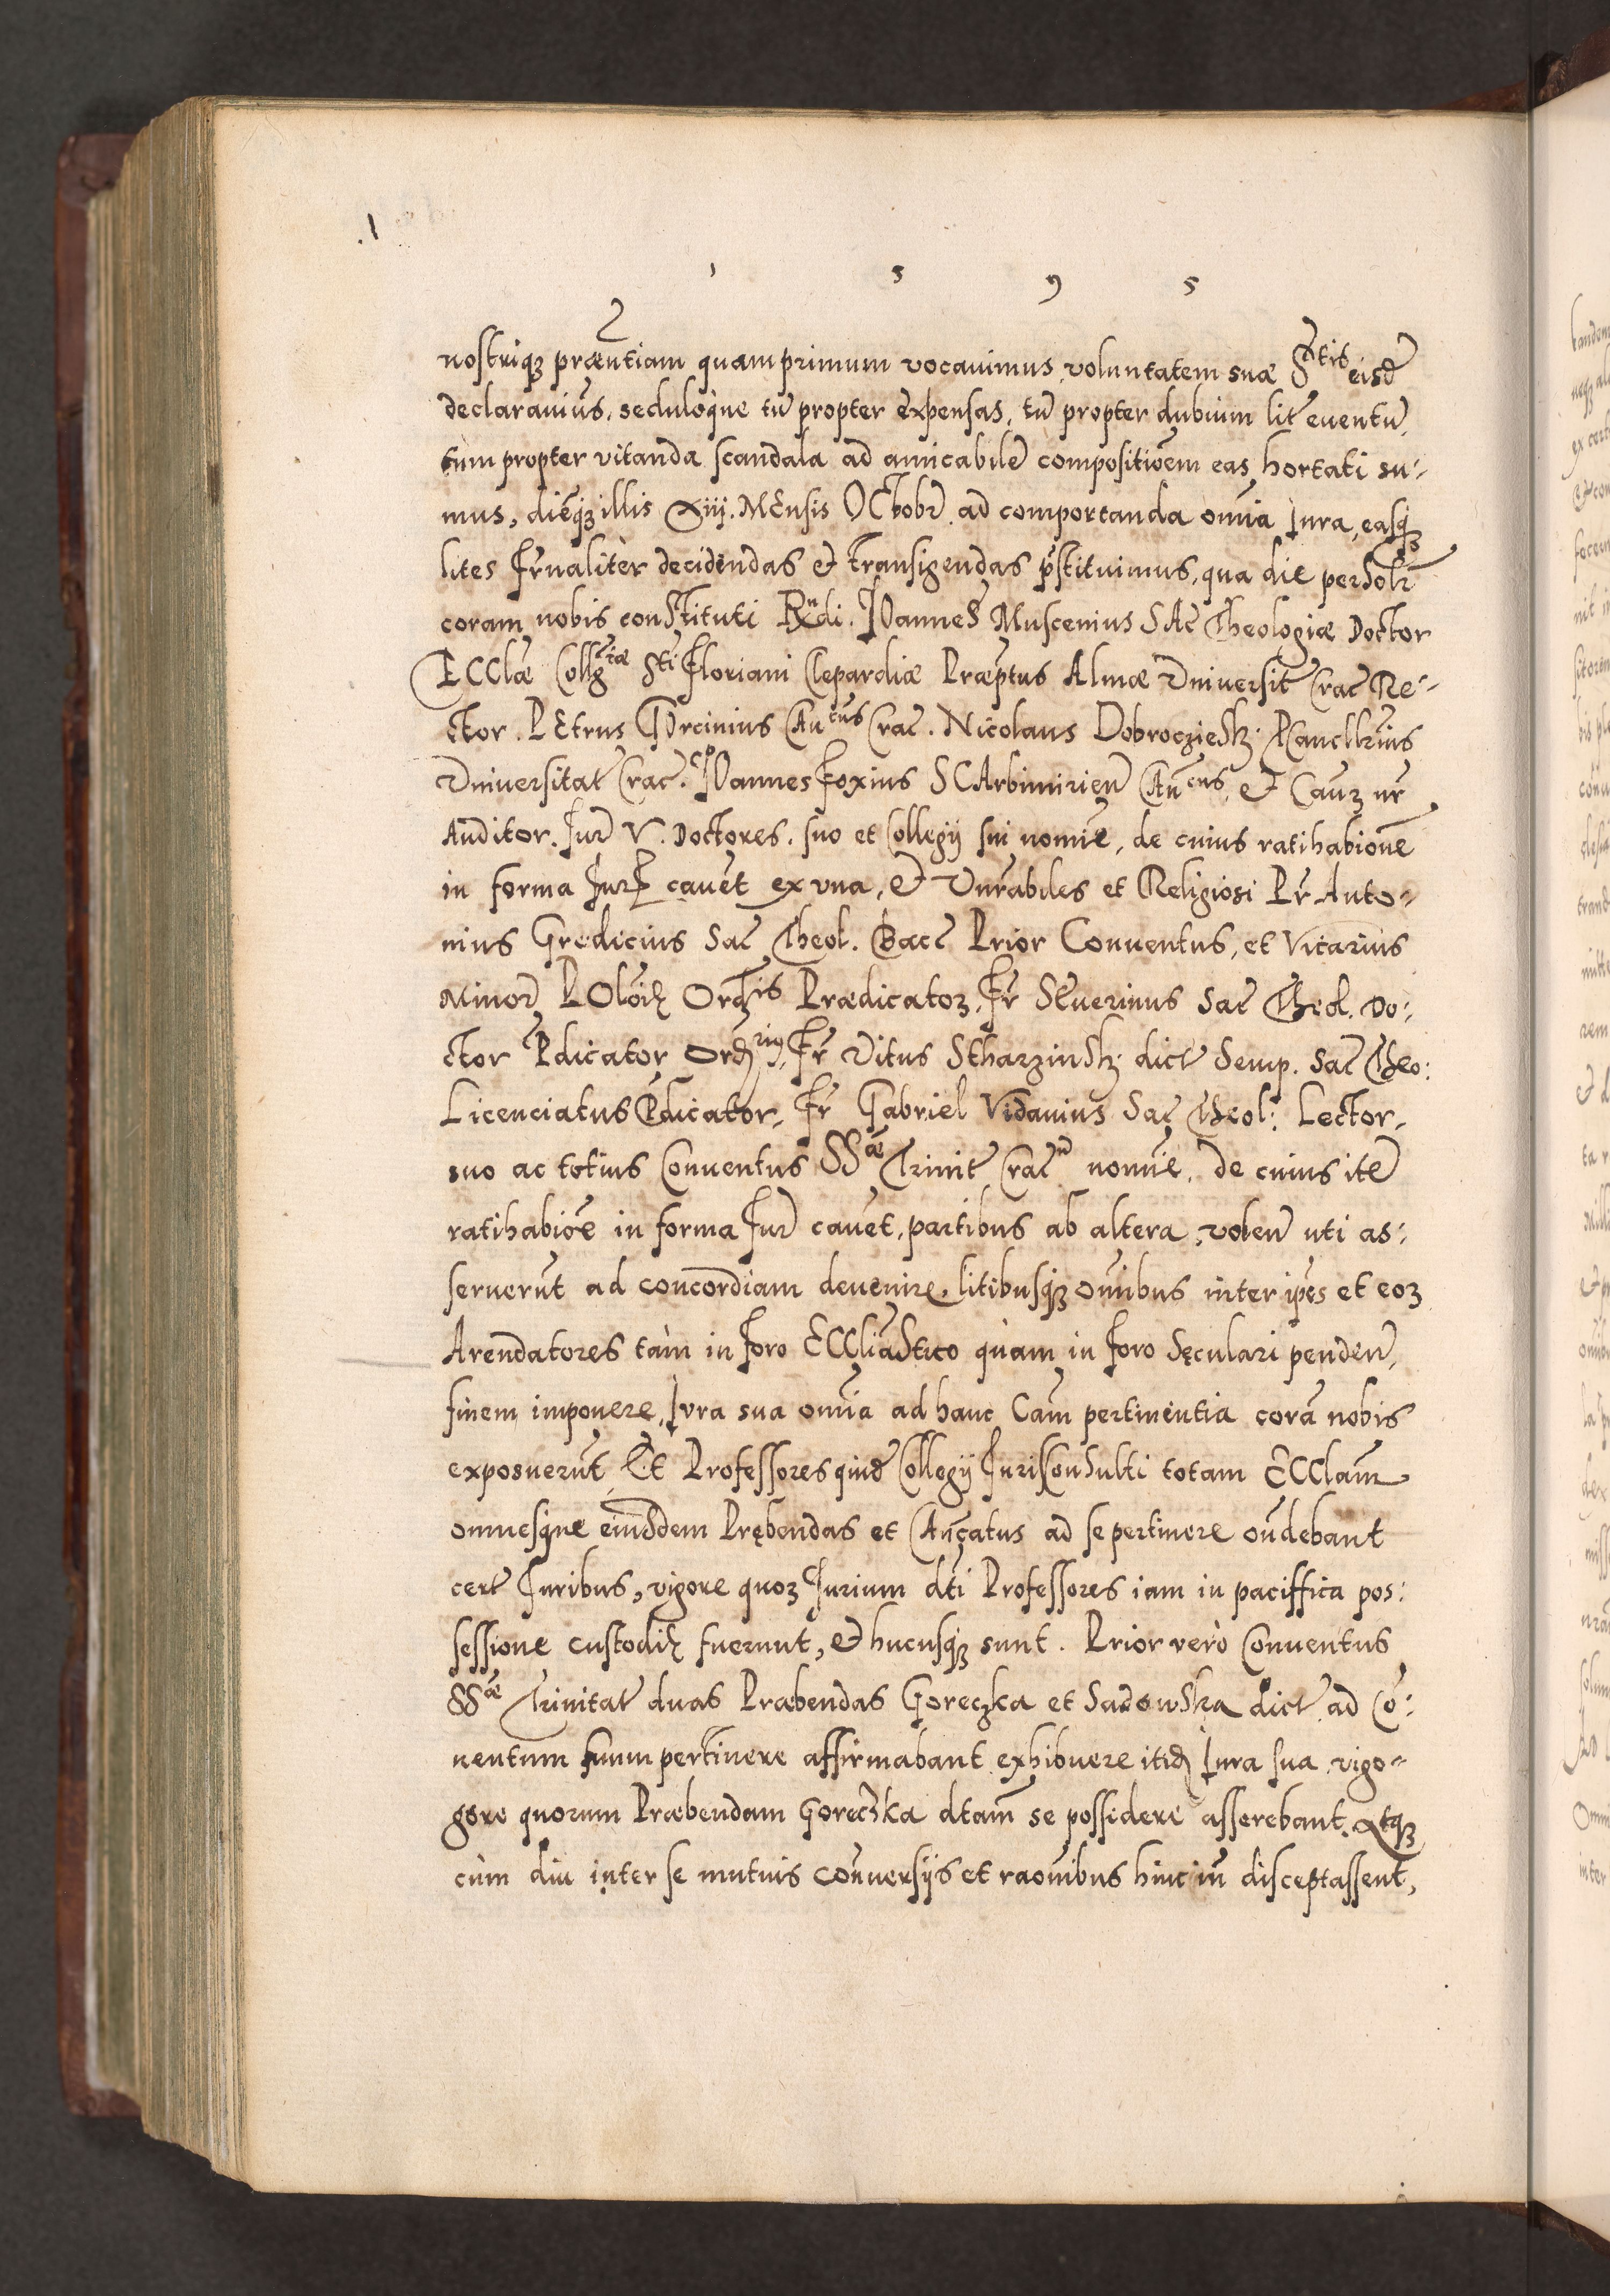 .1
1 5 9 5
nostriq3 præntiam quamprimum vocauimus, voluntatem suæ Stis eisd
declarauius. seduloque tū propter expensas, tū propter dubium lit euentū,
tum propter vitanda scandala ad amicabilē compositioēm eas hortati su-
mus, diēq3 illis xiij. MEnsis OCtobr ad comportanda omīa Iura, easq3
lites Frnaliter decidendas et transigendas pstituimus, qua die personlr
coram nobis constituti Rndi. IOannes Muscenius SAc Theologiæ Doctor
ECClæ Collgtæ Sti Floriani Clepardiæ Præptus Almæ Vniuersit Crac Re-
ctor. PEtrus GOrcinius CAncus Crac. Nicolaus Dobrocziesk. PCancllrius
Vniuersitat Crac. IOannes Foxius SCArbimirien CAncus, et Cau3 nr
Auditor. Iur V. Doctores. suo et Collegij sui nomīe, de cuius ratihabione
in forma Iur cauēt ex vna, et Vnrabiles et Religiosi Pr Anto-
nius Gredicius Sac Theol. Bacc Prior Conuentus, et Vicarius
Minor POlōi Ordis Prædicato3, Fr SEuerinus Sac Theol. Do-
ctor Pdicator Ord, Fr Vitus Stharzinsk dict Semp. Sac Theo:
Licenciatus Pdicator, Fr Gabriel Vidauius Sac Theol: Lector,
suo ac totius Conuentus SSæ Trinit Cracn nomīe, de cuius itē
ratihabiōe in forma Iur cauēt, partibus ab altera, volen uti as-
seruerūt ad concordiam deuenire, litibusq3 omībus inter ipēs et eo3
Arendatores tàm in foro ECCliastico quàm in foro Sęculari penden,
finem imponere, Iura sua omīa ad hanc Cām pertinentia corā nobis
exposuerūt, Et Professores quid Collegij IurisConsulti totam ECClām
omnesque eiusdem Prębendas et CAncatus ad se pertinere oūdebant
cert Iuribus, vigore quo3 Iurium dti Professores iam in paciffica pos-
sessione custodi fuerunt, et hucusq3 sunt. Prior verò Conuentus
SSæ Trinitat duas Præbendas Goreczka et Sadowska dict, ad Cō-
uentum suum pertinere affirmabant, exhibuere itid Iura sua, vigo-
gore quorum Præbendam Goreczka dtam se possidere asserebant. Atq3
cùm diu inter se mutuis conuersijs et raōnibus hinc in disceptassent,